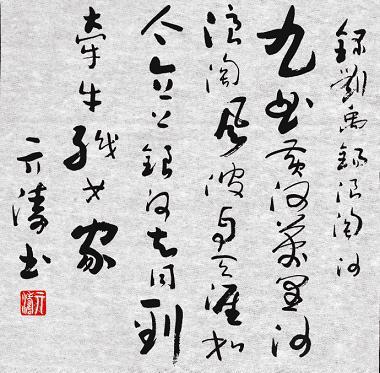 錄劉禹錫浪淘沙
九曲黃河萬里沙
浪淘风波自天涯如
今直上銀河去同到
牽牛織女家
亓濤书